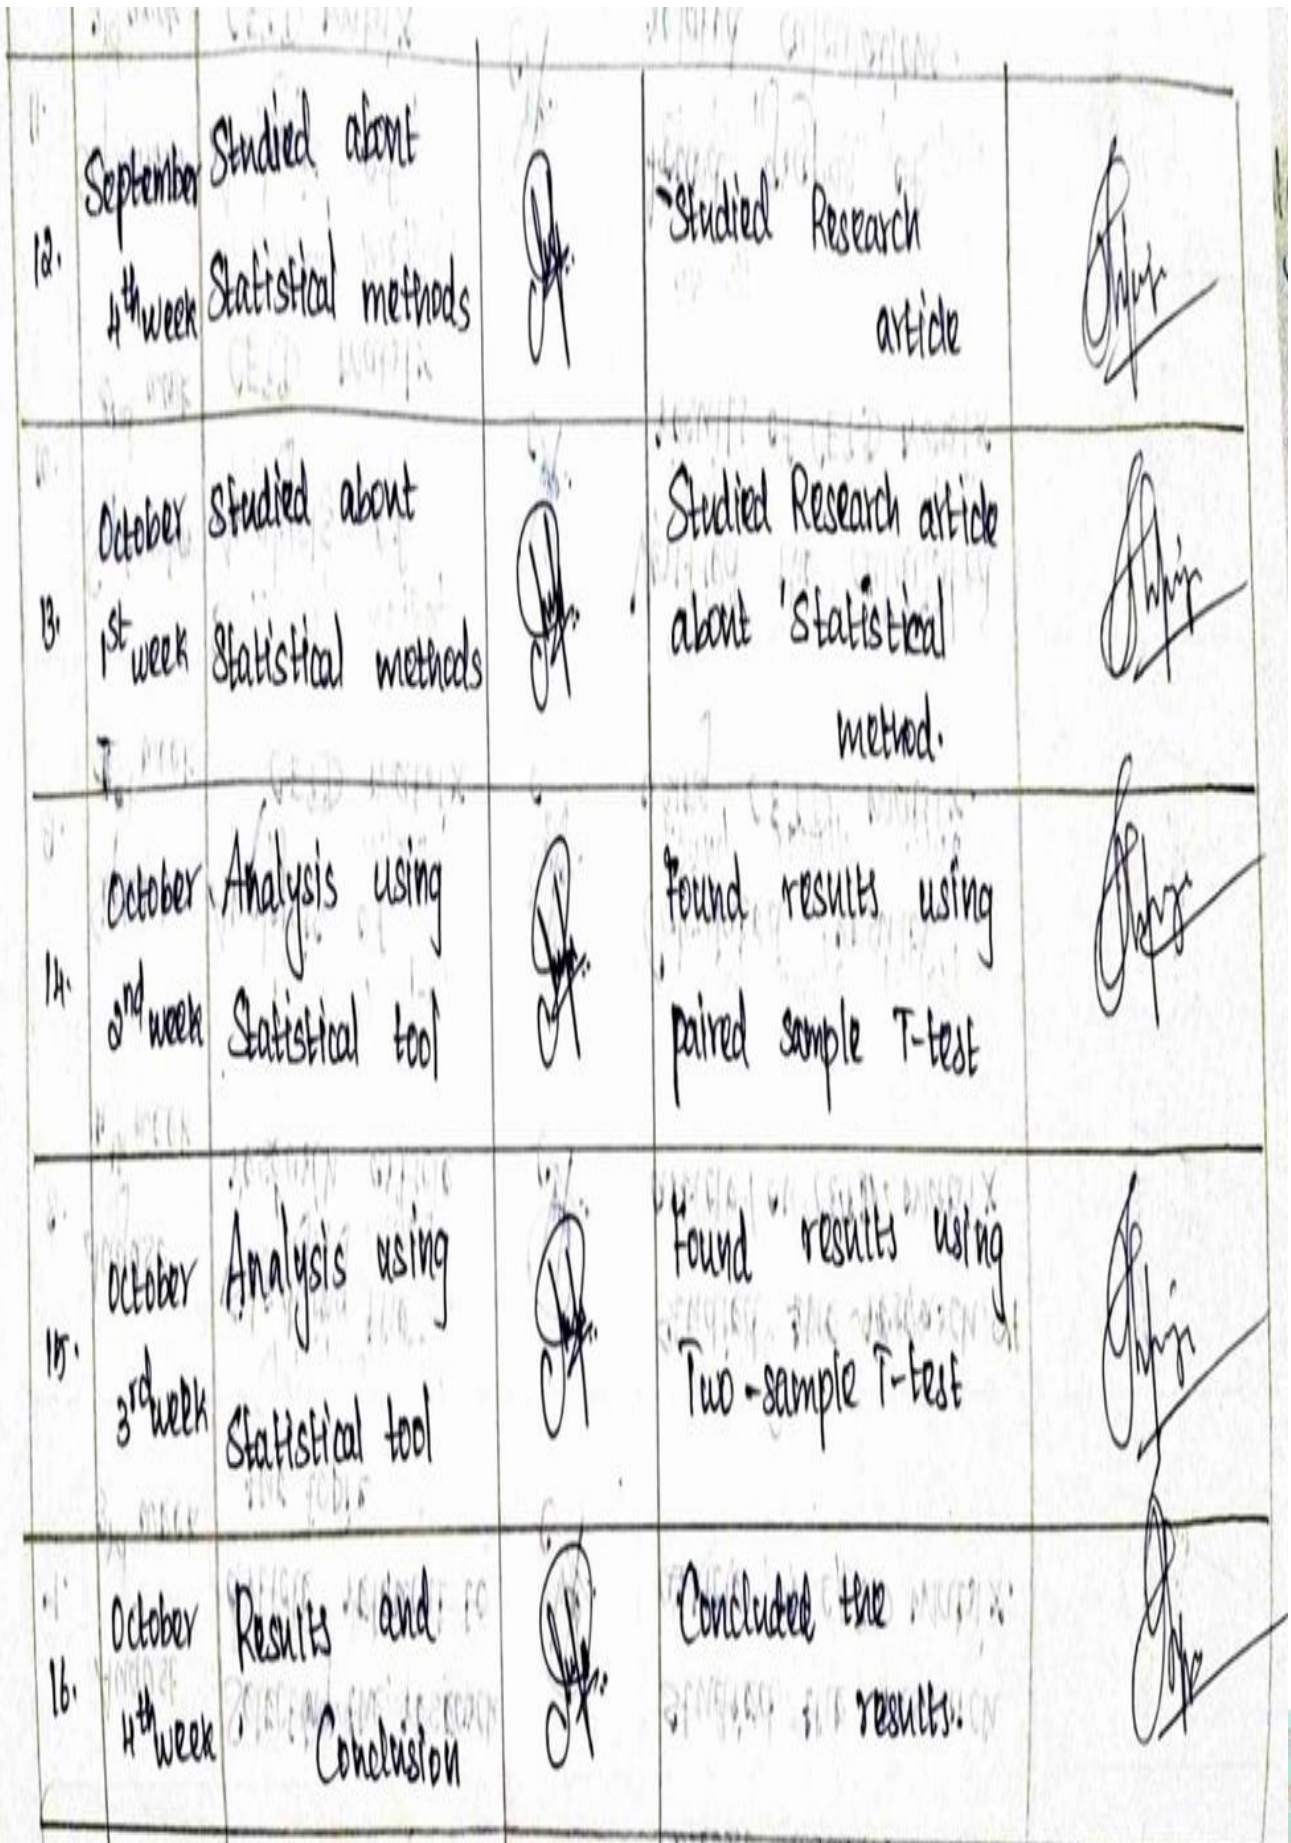 12.
September
4th week
Studied about
Statistical methods
Studied Research
article
13.
October
1st week
Studied about
Statistical methods
Studied Research article
about 'Statistical
method.
14.
October
2nd week
Analysis using
Statistical tool
Found results using
paired sample T-test
15.
October
3rd week
Analysis using
Statistical tool
Found results using
Two-sample T-test
16.
October
4th week
Results and
Conclusion
Concluded the
results.